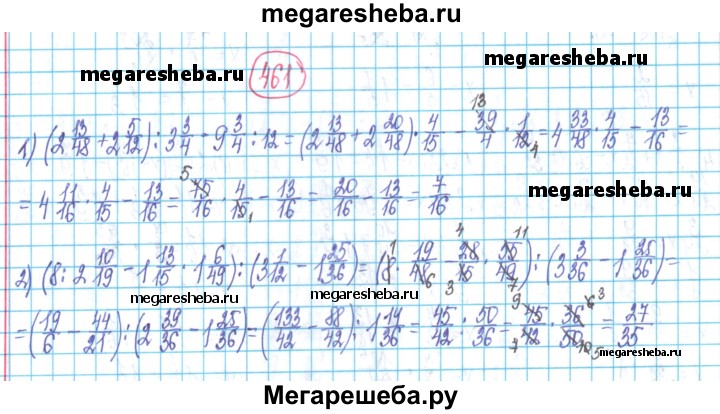 megaresheba.ru
megaresheba.ru 461 megaresheba.ru
1) (2 13/48 + 2 5/12) : 3 3/4 - 9 3/4 : 12 = (2 13/48 + 2 20/48) · 4/15 - 39/4 · 1/12 = 4 33/48 · 4/15 - 13/16 =
= 4 11/16 · 4/15 - 13/16 = 75/16 · 4/15 - 13/16 = 20/16 - 13/16 = 7/16
megaresheba.ru
2) (8 : 2 10/19 - 1 13/15 · 1 6/49) : (3 1/12 - 1 25/36) = (8 · 19/48 - 28/15 · 55/49) : (3 3/36 - 1 25/36) =
megaresheba.ru megaresheba.ru
= (19/6 - 44/21) : (2 39/36 - 1 25/36) = (133/42 - 88/42) : 1 14/36 = 45/42 : 50/36 = 45/42 · 36/50 = 27/35
megaresheba.ru
Мегарешеба.ру